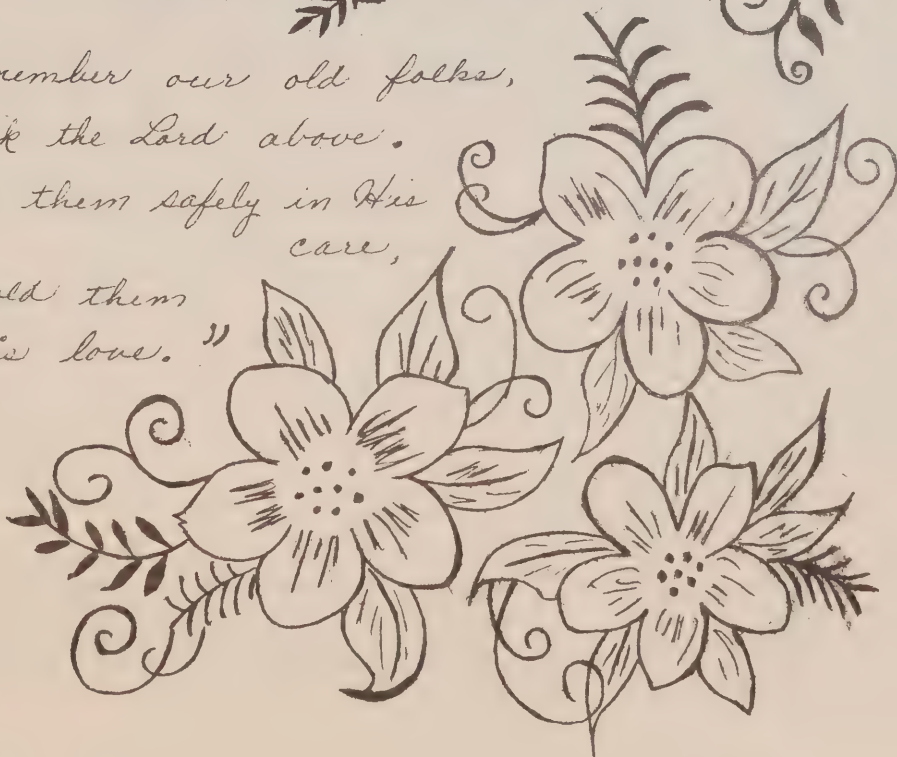 our old folks,
the Lord above.
them safely in His
care,
them
love.”